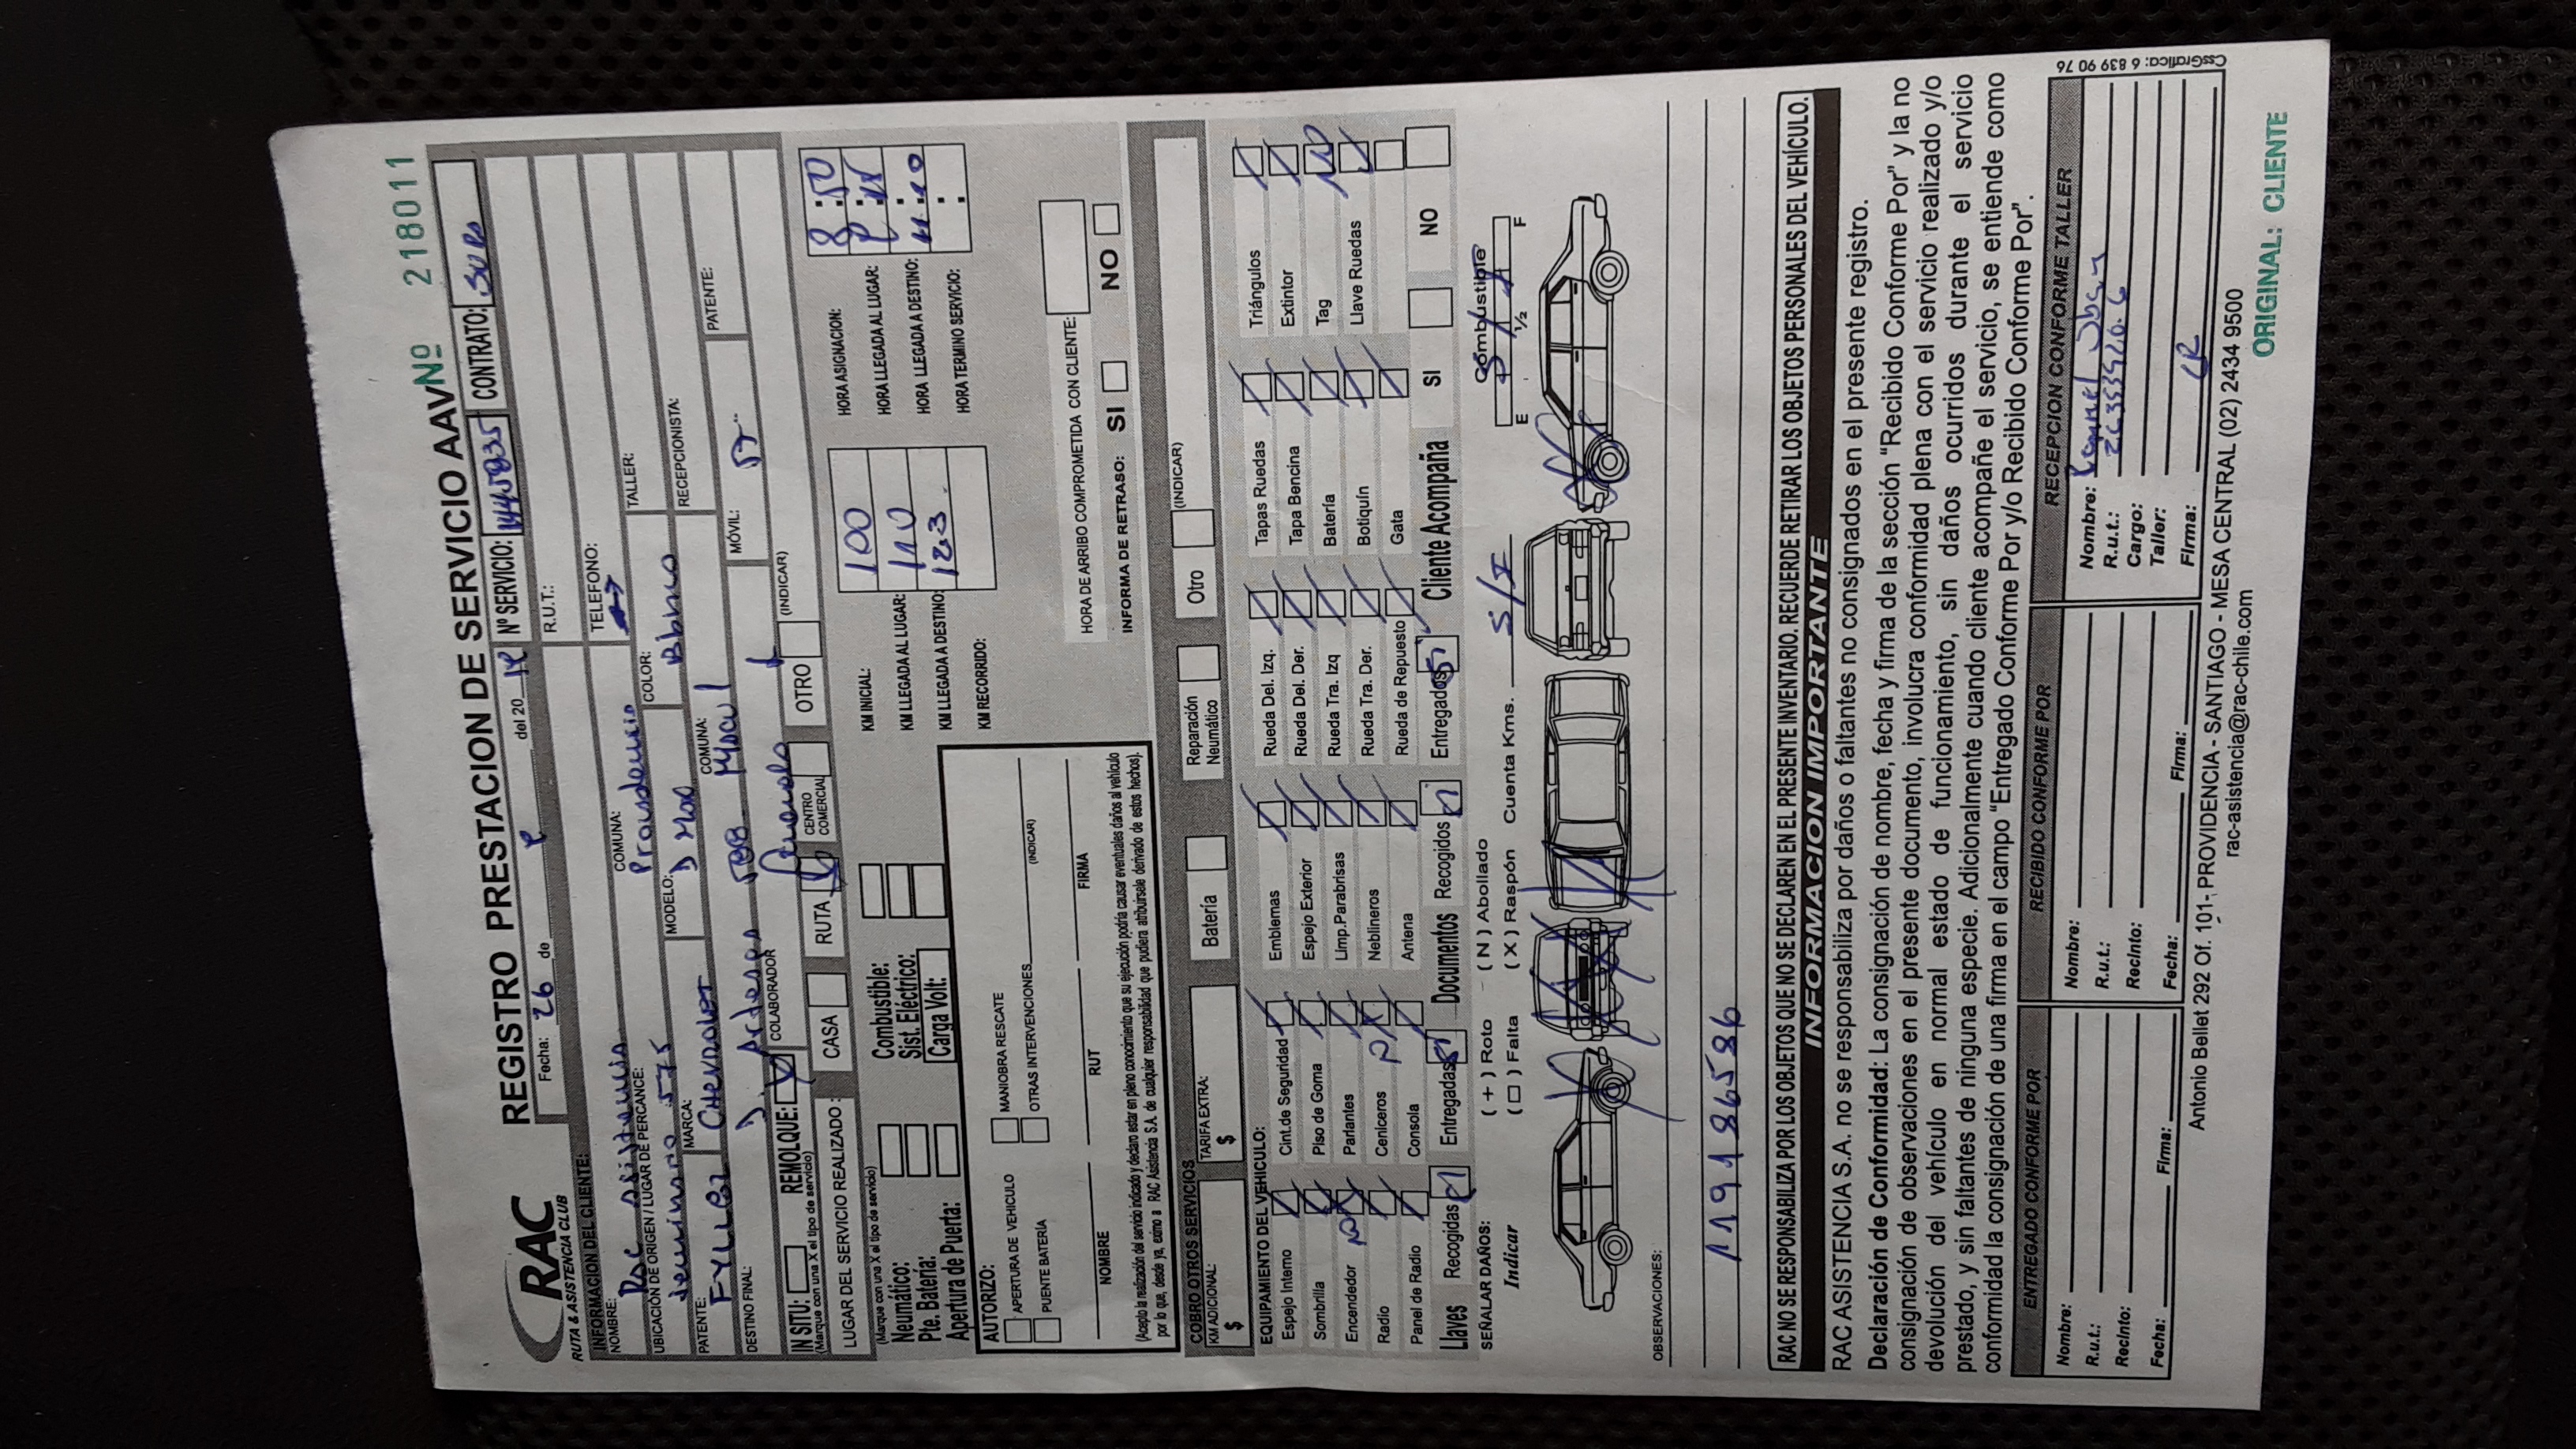 RAC
RUTA & ASISTENCIA CLUB
REGISTRO PRESTACION DE SERVICIO AAV Nº 218011
Fecha: 26 de del 20
Nº SERVICIO: CONTRATO:
INFORMACION DEL CLIENTE:
NOMBRE: Rac asistencia R.U.T.:
UBICACIÓN DE ORIGEN / LUGAR DE PERCANCE: COMUNA: TELEFONO:
seminario 575 Providencia
PATENTE: MARCA: MODELO: COLOR: TALLER:
Chevrolet D Max Blanco
DESTINO FINAL: COMUNA: RECEPCIONISTA:
J. Macul
COLABORADOR MÓVIL: PATENTE:
IN SITU: REMOLQUE:
(Marque con una X el tipo de servicio)
LUGAR DEL SERVICIO REALIZADO: CASA RUTA CENTRO COMERCIAL OTRO (INDICAR)
(Marque con una X el tipo de servicio)
Neumático: Combustible:
Pte. Batería: Sist. Eléctrico:
Apertura de Puerta: Carga Volt:
KM INICIAL: 100 HORA ASIGNACION: 8:50
KM LLEGADA AL LUGAR: 110 HORA LLEGADA AL LUGAR:
KM LLEGADA A DESTINO: 123 HORA LLEGADA A DESTINO:
KM RECORRIDO: HORA TERMINO SERVICIO:
AUTORIZO:
APERTURA DE VEHICULO MANIOBRA RESCATE
PUENTE BATERÍA OTRAS INTERVENCIONES (INDICAR)
NOMBRE RUT FIRMA
(Acepto la realización del servicio indicado y declaro estar en pleno conocimiento que su ejecución podría causar eventuales daños al vehículo
por lo que, desde ya, eximo a RAC Asistencia S.A. de cualquier responsabilidad que pudiera atribuírsele derivado de estos hechos).
HORA DE ARRIBO COMPROMETIDA CON CLIENTE:
INFORMA DE RETRASO: SI NO
COBRO OTROS SERVICIOS
KM ADICIONAL: $ TARIFA EXTRA: $ Batería Reparación Neumático Otro (INDICAR)
EQUIPAMIENTO DEL VEHICULO:
Espejo Interno Cint.de Seguridad Emblemas Rueda Del. Izq. Tapas Ruedas Triángulos
Sombrilla Piso de Goma Espejo Exterior Rueda Del. Der. Tapa Bencina Extintor
Encendedor Parlantes Limp.Parabrisas Rueda Tra. Izq Batería Tag NO
Radio Ceniceros Neblineros Rueda Tra. Der. Botiquín Llave Ruedas
Panel de Radio Consola Antena Rueda de Repuesto Gata
Llaves Recogidas Entregadas Documentos Recogidos Entregados Cliente Acompaña SI NO
SEÑALAR DAÑOS: ( + ) Roto ( N ) Abollado
Indicar ( □ ) Falta ( X ) Raspón Cuenta Kms. S/I Combustible E 1/2 F
OBSERVACIONES:
119186586
RAC NO SE RESPONSABILIZA POR LOS OBJETOS QUE NO SE DECLAREN EN EL PRESENTE INVENTARIO. RECUERDE RETIRAR LOS OBJETOS PERSONALES DEL VEHÍCULO.
INFORMACION IMPORTANTE
RAC ASISTENCIA S.A. no se responsabiliza por daños o faltantes no consignados en el presente registro.
Declaración de Conformidad: La consignación de nombre, fecha y firma de la sección "Recibido Conforme Por" y la no
consignación de observaciones en el presente documento, involucra conformidad plena con el servicio realizado y/o
devolución del vehículo en normal estado de funcionamiento, sin daños ocurridos durante el servicio
prestado, y sin faltantes de ninguna especie. Adicionalmente cuando cliente acompañe el servicio, se entiende como
conformidad la consignación de una firma en el campo "Entregado Conforme Por y/o Recibido Conforme Por".
ENTREGADO CONFORME POR RECIBIDO CONFORME POR RECEPCION CONFORME TALLER
Nombre: Nombre: Nombre:
R.u.t.: R.u.t.: R.u.t.:
Recinto: Recinto: Cargo:
Fecha: Firma: Fecha: Firma: Taller:
Firma:
Antonio Bellet 292 Of. 101-, PROVIDENCIA - SANTIAGO - MESA CENTRAL (02) 2434 9500
rac-asistencia@rac-chile.com
ORIGINAL: CLIENTE
CssGrafica: 6 839 90 76